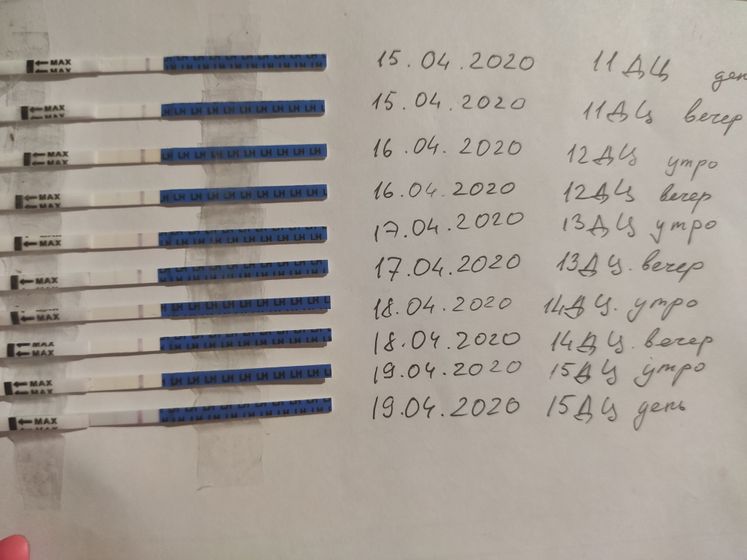 MAX LH LH LH LH LH LH LH LH 15.04.2020 11 ДЦ ден
MAX LH LH LH LH LH LH LH LH 15.04.2020 11 ДЦ вечер
MAX LH LH LH LH LH LH LH LH 16.04.2020 12 ДЦ утро
MAX LH LH LH LH LH LH LH LH 16.04.2020 12 ДЦ вечер
MAX LH LH LH LH LH LH LH LH 17.04.2020 13 ДЦ утро
MAX LH LH LH LH LH LH LH LH 17.04.2020 13 ДЦ. вечер
MAX LH LH LH LH LH LH LH LH 18.04.2020 14 ДЦ. утро
MAX LH LH LH LH LH LH LH LH 18.04.2020 14 ДЦ. вечер
MAX LH LH LH LH LH LH LH LH 19.04.2020 15 ДЦ утро
MAX LH LH LH LH LH LH LH LH 19.04.2020 15 ДЦ день